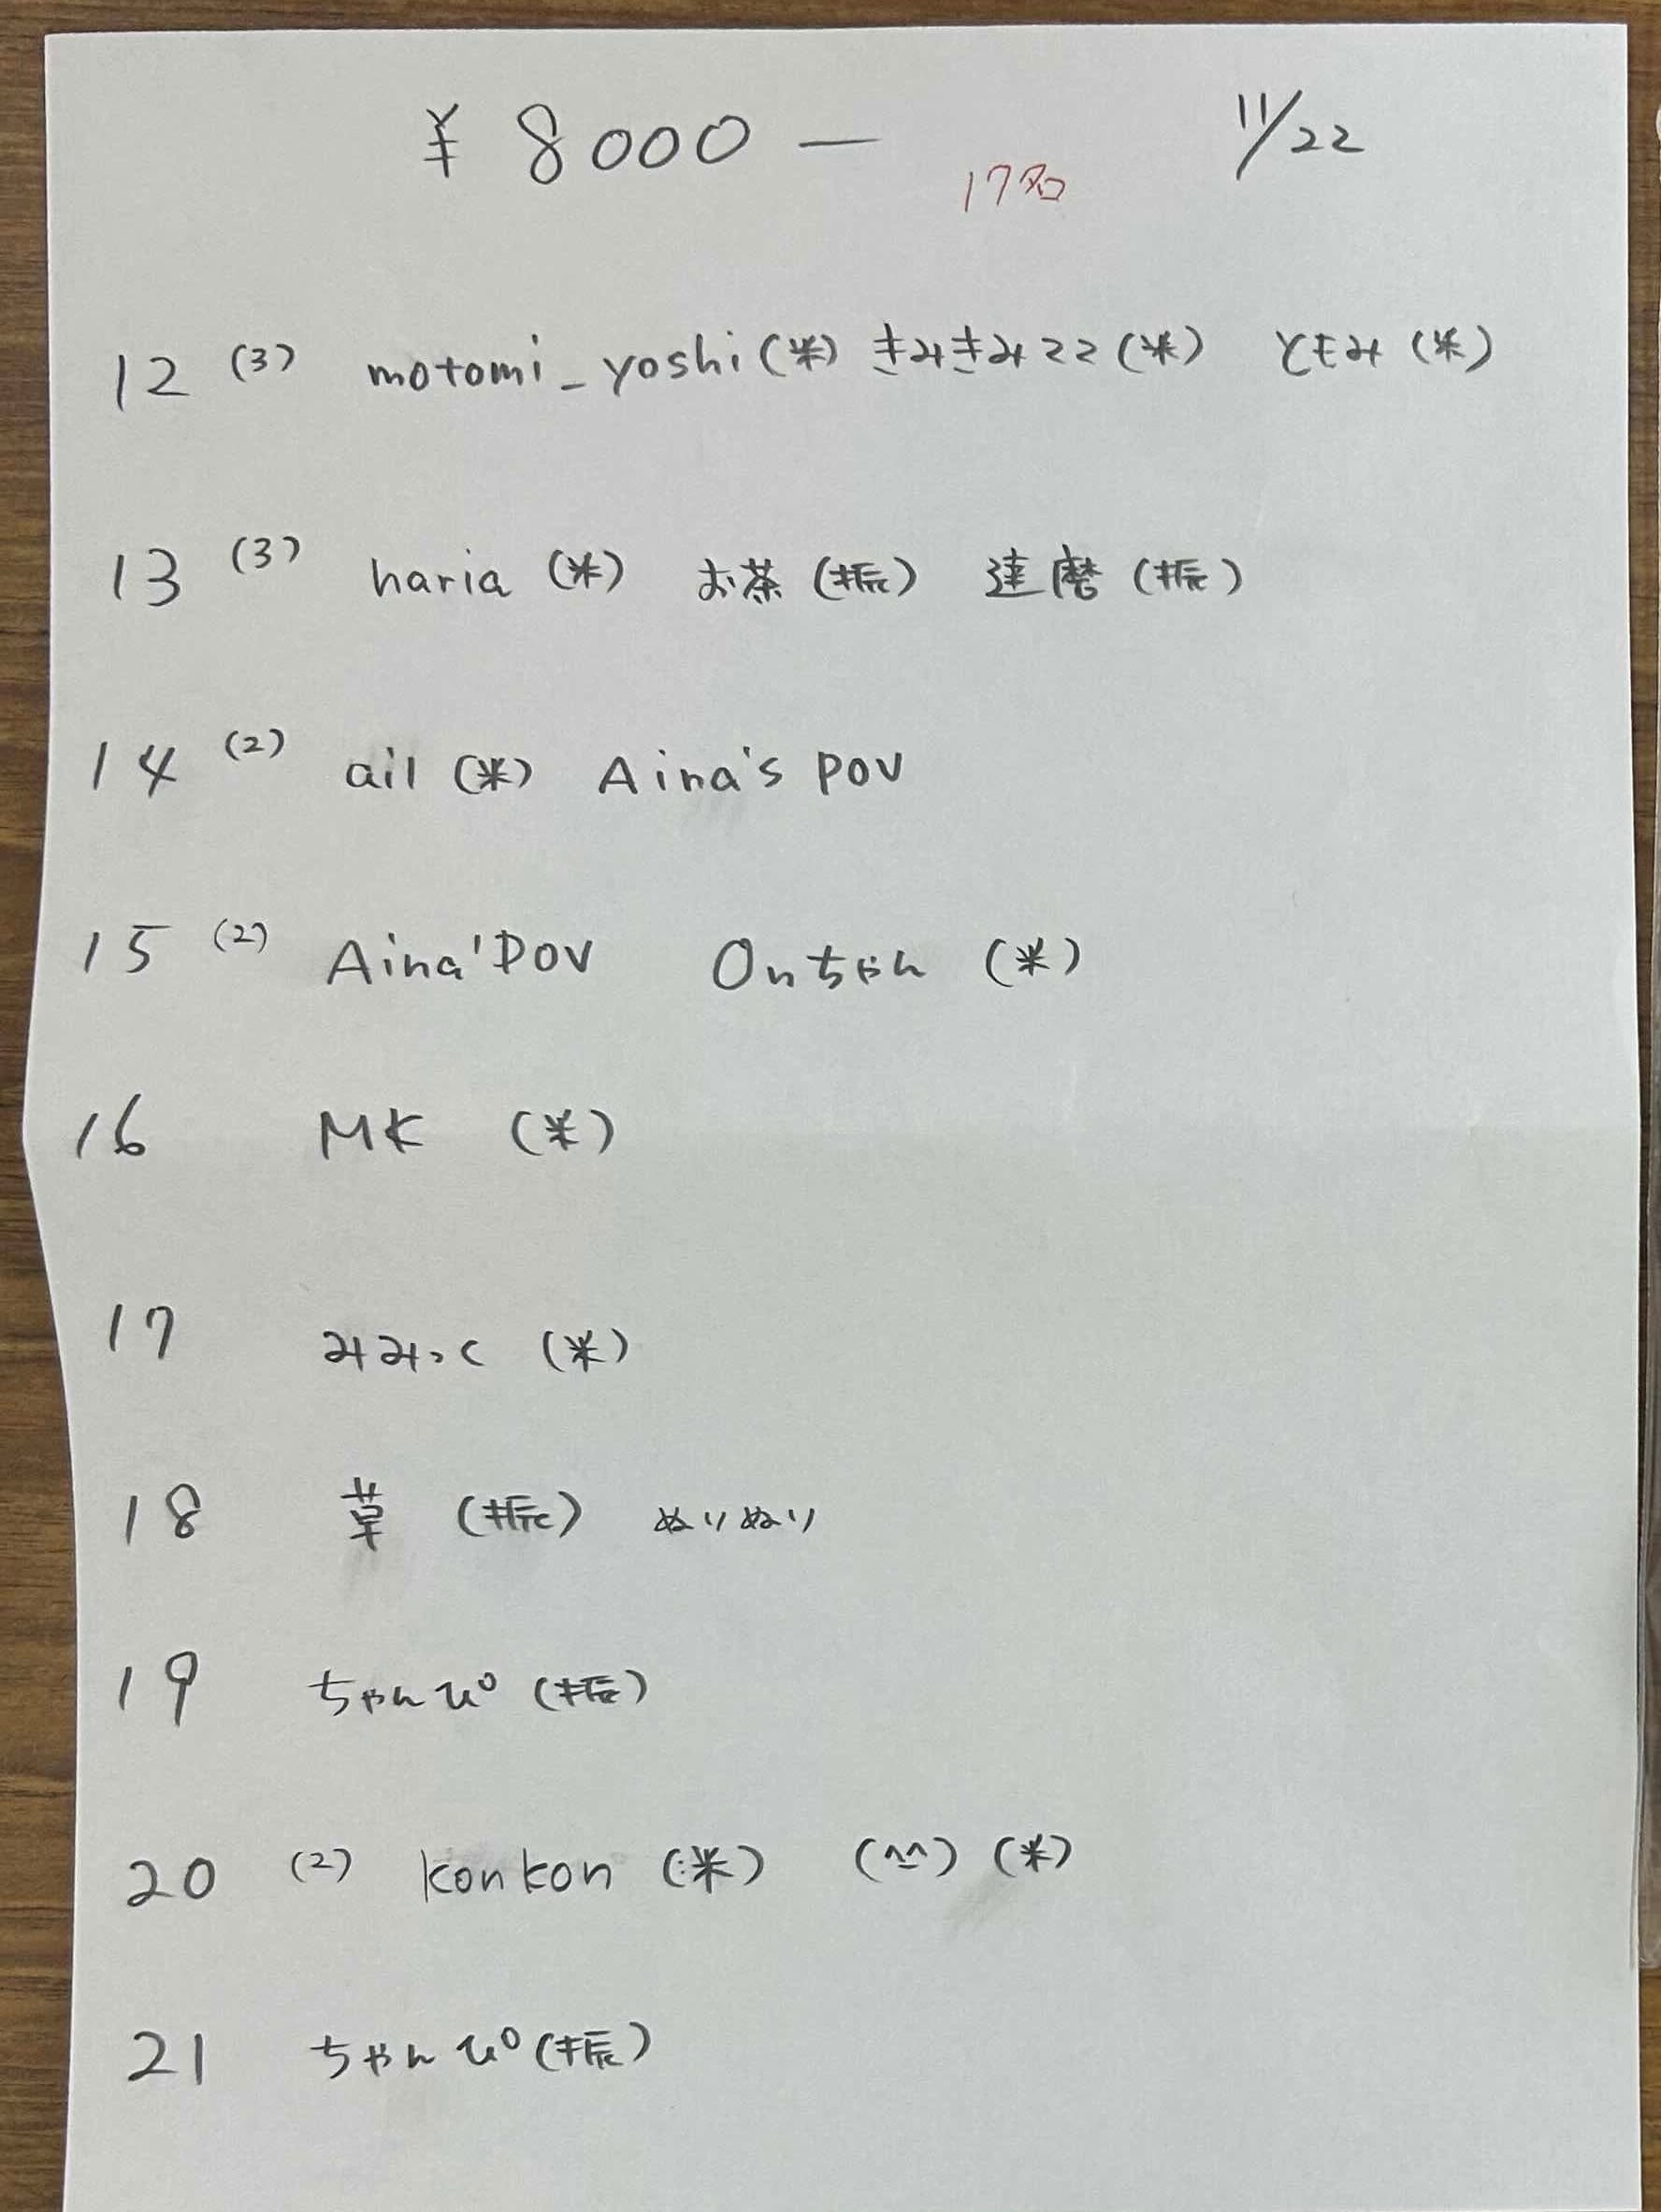 ¥8000— 17名 11/22
12 (3) motomi_yoshi(米) きみきみここ(米) ともみ(米)
13 (3) haria (米) お茶(振) 達磨(振)
14 (2) ail (米) Aina's POV
15 (2) Aina'POV Onちゃん (米)
16 MK (米)
17 みみっく (米)
18 草 (振) ぬりぬり
19 ちゃんぴ(振)
20 (2) konkon (米) (^^) (米)
21 ちゃんぴ(振)